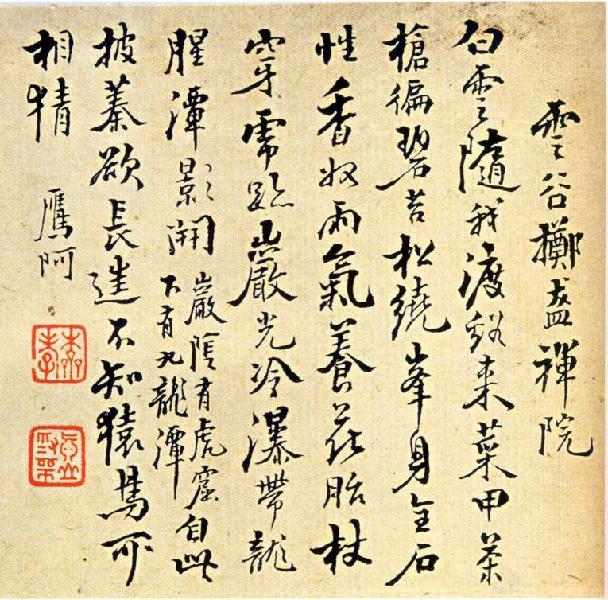 雲谷擲盃禪院
白雲隨我渡谿來菜甲茶
槍徧碧苔松繞峯身全石
性香奴雨氣養花胎杖
穿虎跡巖光冷瀑帶龍
腥潭影開巖陰有虎窟自此
下有九龍潭
披蓁欲長進不知猿鳥可
相猜 鷹阿